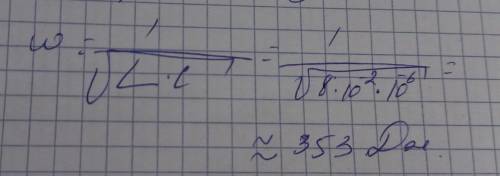 ω = 1 / √(L · C) = 1 / √(8 · 10⁻² · 10⁻⁶) =
≈ 353